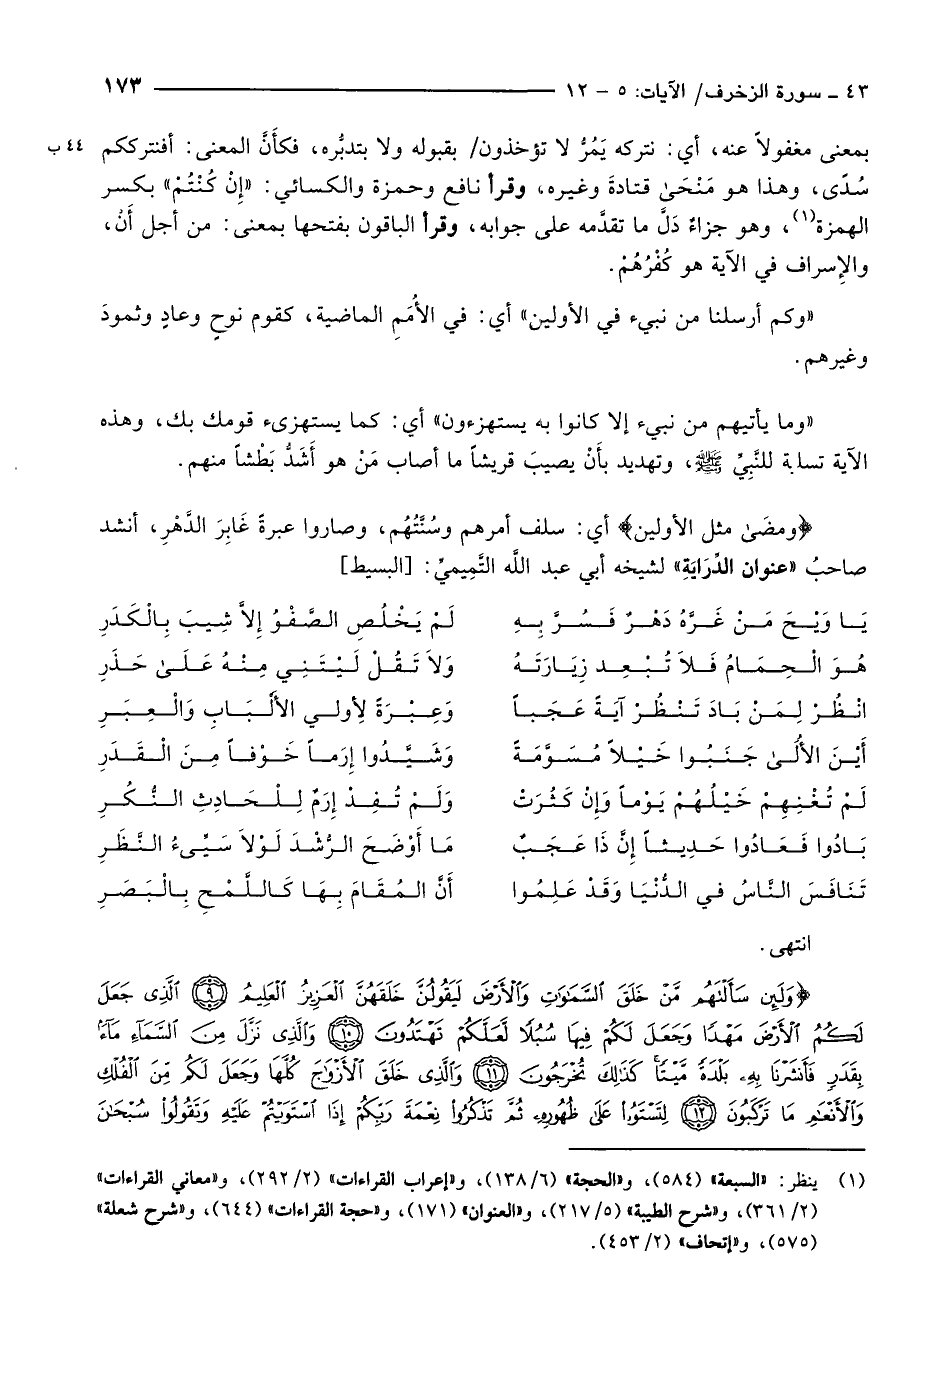 ٤٣ ـ سورة الزخرف/ الآيات: ٥ - ١٢ ١٧٣
بمعنى مغفولاً عنه، أي: نتركه يَمُرُّ لا تؤخذون/ بقبوله ولا بتدبُّره، فكأَنَّ المعنى: أفنترككم ٤٤ ب
سُدًى، وهذا هو مَنْحَىٰ قتادةَ وغيره، وقرأ نافع وحمزة والكسائي: «إِنْ كُنْتُمْ» بكسر
الهمزة(١)، وهو جزاءٌ دَلَّ ما تقدَّمه على جوابه، وقرأ الباقون بفتحها بمعنى: من أجل أَنْ،
والإسراف في الآية هو كُفْرُهُمْ.
«وكم أرسلنا من نبيء في الأولين» أي: في الأُمَمِ الماضية، كقوم نوحٍ وعادٍ وثمودَ
وغيرهم.
«وما يأتيهم من نبيء إلا كانوا به يستهزءون» أي: كما يستهزىء قومك بك، وهذه
الآية تسلية للنَّبِيِّ ﷺ، وتهديد بأَنْ يصيبَ قريشاً ما أصاب مَنْ هو أَشَدُّ بَطْشاً منهم.
﴿ومضىٰ مثل الأولين﴾ أي: سلف أمرهم وسُنَّتُهُم، وصاروا عبرةً غَابِرَ الدَّهْرِ، أنشد
صاحبُ «عنوان الدِّرَايَةِ» لشيخه أبي عبد اللَّه التَّمِيميِّ: [البسيط]
يَا وَيْحَ مَنْ غَرَّهُ دَهْرٌ فَسُرَّ بِهِ لَمْ يَخْلُصِ الصَّفْوُ إِلاَّ شِيبَ بِالْكَدَرِ
هُوَ الْحِمَامُ فَلاَ تُبْعِد زِيَارَتَهُ وَلاَ تَقُلْ لَيْتَنِي مِنْهُ عَلَىٰ حَذَرِ
انْظُرْ لِمَنْ بَادَ تَنْظُرْ آيَةً عَجَباً وَعِبْرَةً لأُولِي الأَلْبَابِ وَالْعِبَرِ
أَيْنَ الأُلَىٰ جَنَبُوا خَيْلاً مُسَوَّمَةً وَشَيَّدُوا إِرَماً خَوْفاً مِنَ الْقَدَرِ
لَمْ تُغْنِهِمْ خَيْلُهُمْ يَوْماً وَإِن كَثُرَتْ وَلَمْ تُفِدْ إِرَمٌ لِلْحَادِثِ النُّكُرِ
بَادُوا فَعَادُوا حَدِيثاً إِنَّ ذَا عَجَبٌ مَا أَوْضَحَ الرُّشْدَ لَوْلاَ سَيِّىءُ النَّظَرِ
تَنَافَسَ النَّاسُ في الدُّنْيَا وَقَدْ عَلِمُوا أَنَّ المُقَامَ بِهَا كَاللَّمْحِ بِالْبَصَرِ
انتهى.
﴿وَلَئِن سَأَلْتَهُم مَّنْ خَلَقَ السَّمَٰوَٰتِ وَٱلْأَرْضَ لَيَقُولُنَّ خَلَقَهُنَّ ٱلْعَزِيزُ ٱلْعَلِيمُ ۝٩ ٱلَّذِى جَعَلَ
لَكُمُ ٱلْأَرْضَ مَهْدًا وَجَعَلَ لَكُمْ فِيهَا سُبُلًا لَّعَلَّكُمْ تَهْتَدُونَ ۝١٠ وَٱلَّذِى نَزَّلَ مِنَ ٱلسَّمَآءِ مَآءًۢ
بِقَدَرٍ فَأَنشَرْنَا بِهِۦ بَلْدَةً مَّيْتًا ۚ كَذَٰلِكَ تُخْرَجُونَ ۝١١ وَٱلَّذِى خَلَقَ ٱلْأَزْوَٰجَ كُلَّهَا وَجَعَلَ لَكُم مِّنَ ٱلْفُلْكِ
وَٱلْأَنْعَٰمِ مَا تَرْكَبُونَ ۝١٢ لِتَسْتَوُۥا۟ عَلَىٰ ظُهُورِهِۦ ثُمَّ تَذْكُرُوا۟ نِعْمَةَ رَبِّكُمْ إِذَا ٱسْتَوَيْتُمْ عَلَيْهِ وَتَقُولُوا۟ سُبْحَٰنَ
(١) ينظر: «السبعة» (٥٨٤)، و«الحجة» (١٣٨/٦)، و«إعراب القراءات» (٢٩٢/٢)، و«معاني القراءات»
(٣٦١/٢)، و«شرح الطيبة» (٢١٧/٥)، و«العنوان» (١٧١)، و«حجة القراءات» (٦٤٤)، و«شرح شعلة»
(٥٧٥)، و«إتحاف» (٤٥٣/٢).